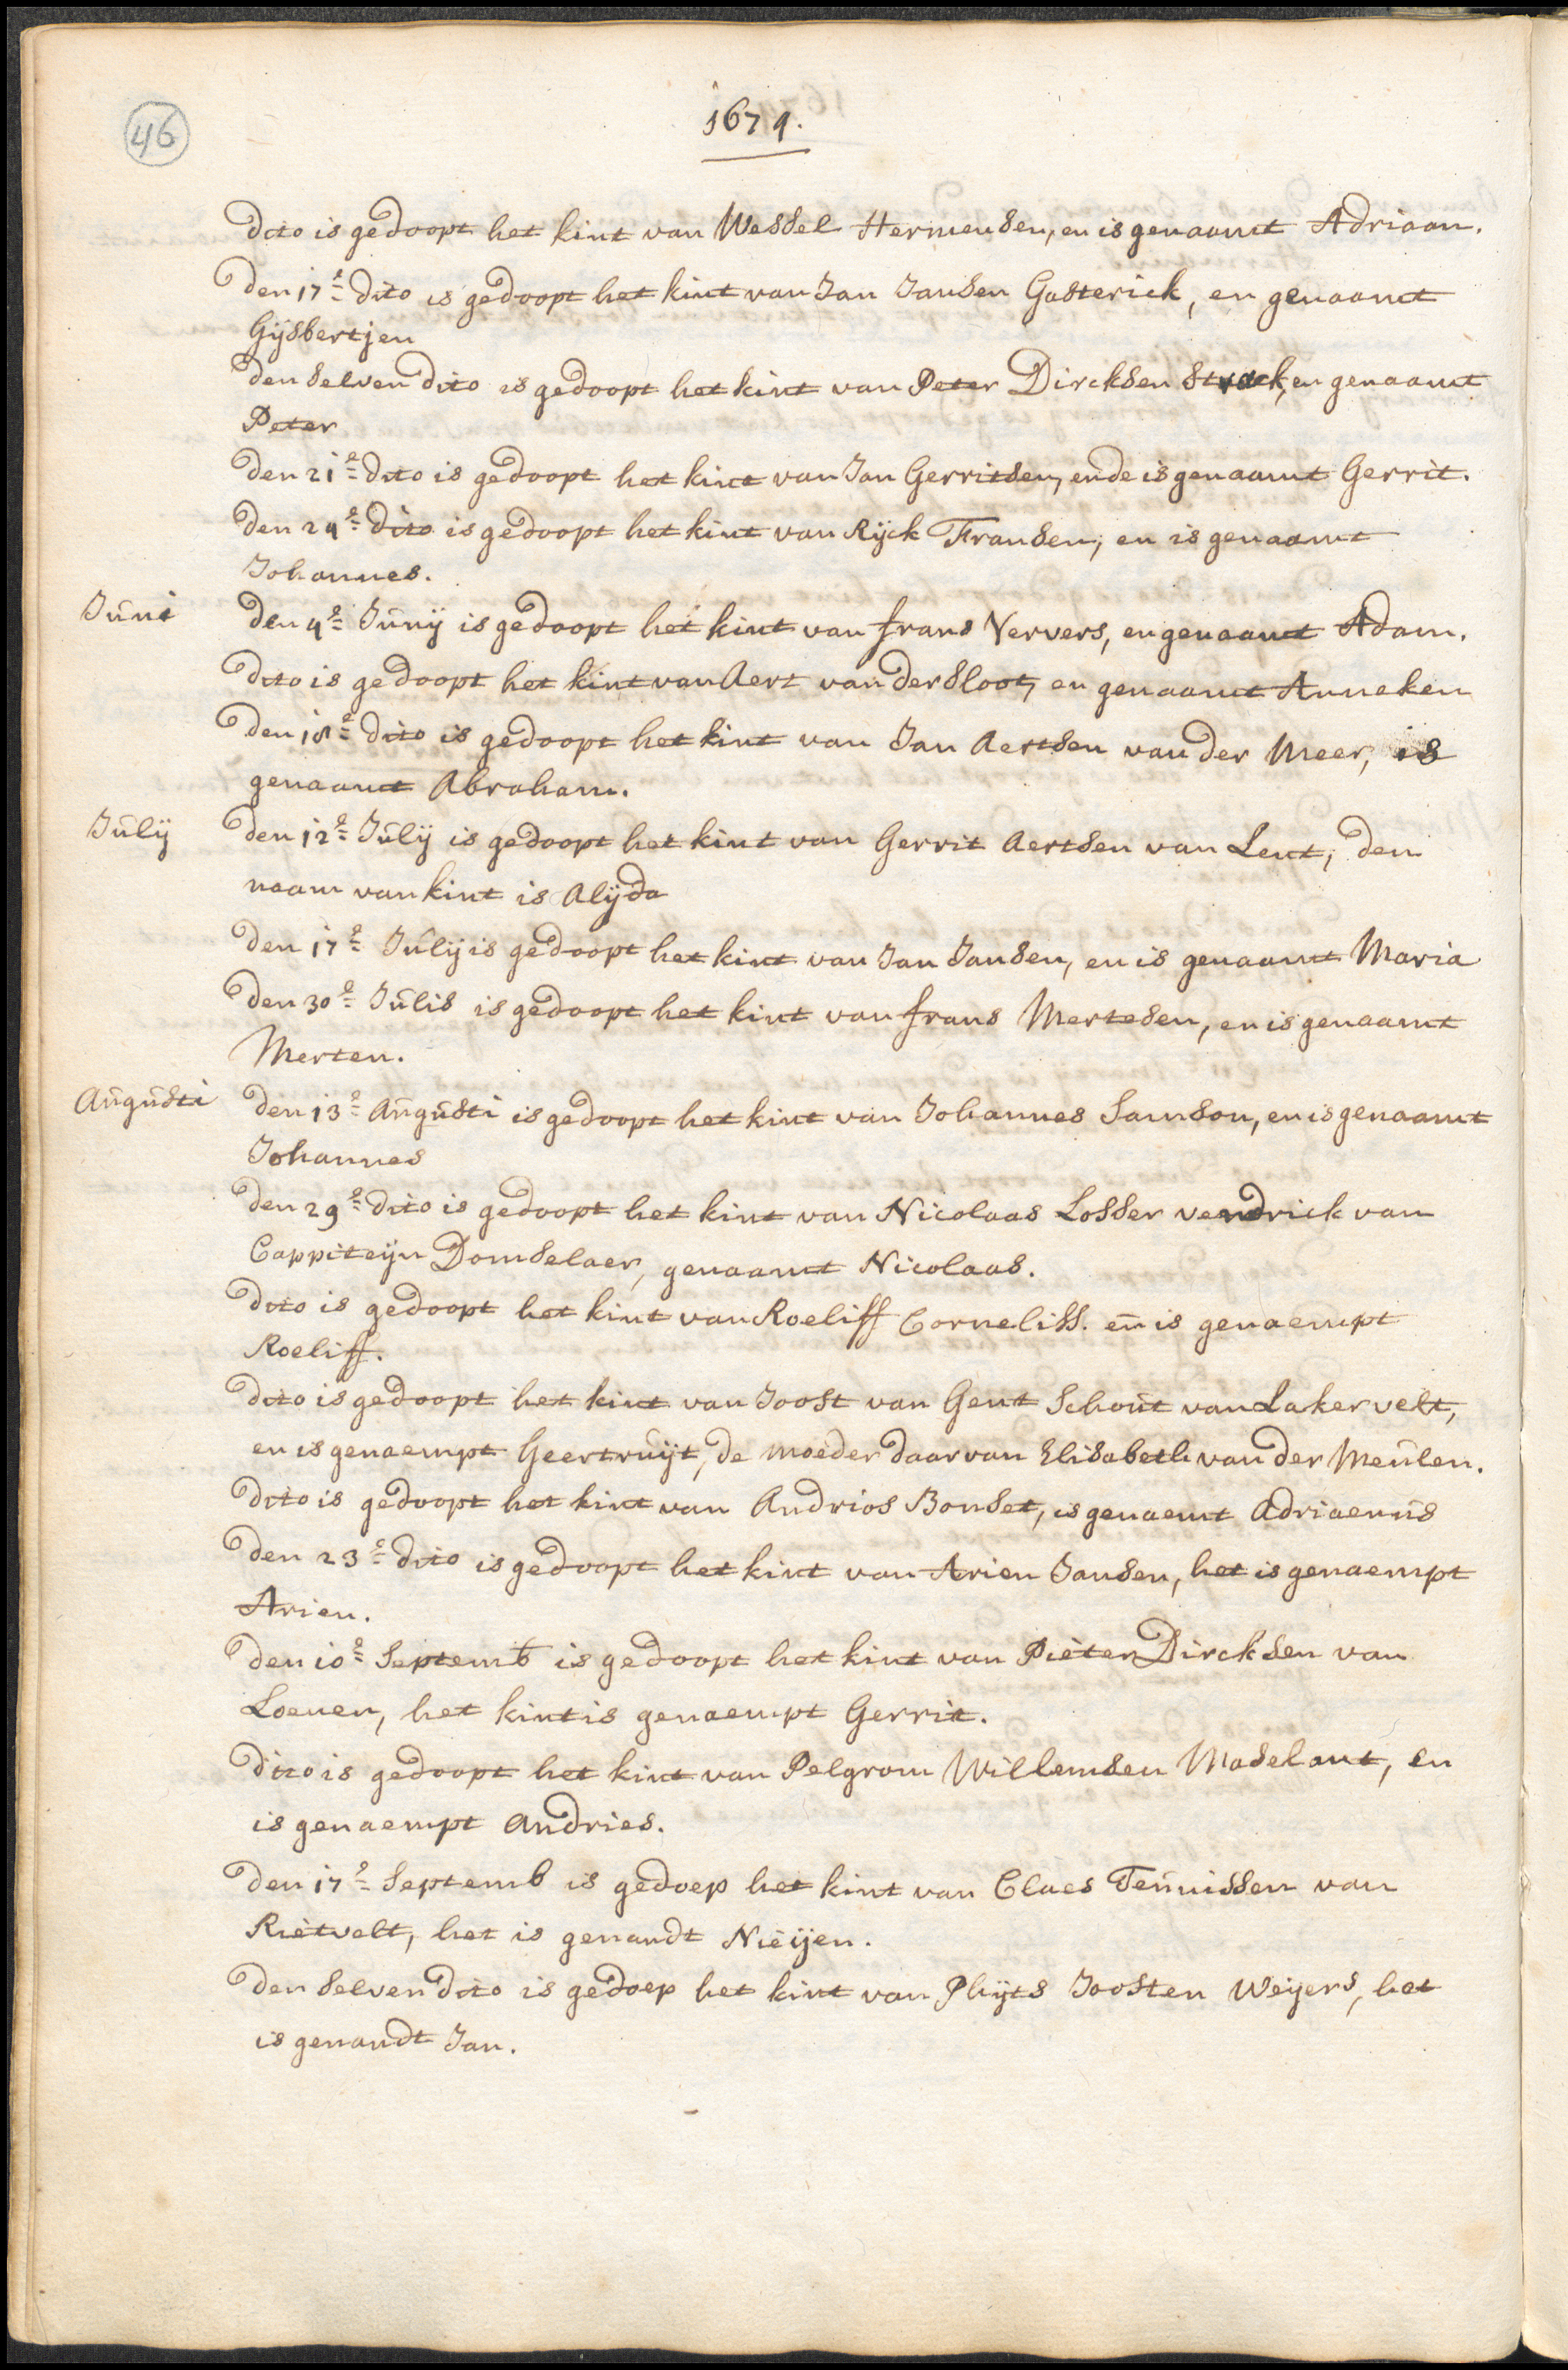 46
1674.
Dito is gedoopt het kint van Wessel Hermensen, en is genaamt Adriaan.
Den 17e dito is gedoopt het kint van Jan Jansen Gasterick, en genaamt
Gijsbertjen
Den selven dito is gedoopt het kint van Peter Dircksen Strack, en genaamt
Peter
Den 21e dito is gedoopt het kint van Jan Gerritsen, ende is genaamt Gerrit.
Den 24e dito is gedoopt het kint van Rijck Fransen, en is genaamt
Johannes.
Juni Den 4e Junij is gedoopt het kint van frans Ververs, en genaamt Adam.
Dito is gedoopt het kint van Aert van der Sloot, en genaamt Anneken
Den 18e dito is gedoopt het kint van Jan Aertsen van der Meer, is
genaamt Abraham.
Julij Den 12e Julij is gedoopt het kint van Gerrit Aertsen van Lent, den
naam van kint is Alijda
Den 17e Julij is gedoopt het kint van Jan Jansen, en is genaamt Maria
Den 30e Julis is gedoopt het kint van frans Mertesen, en is genaamt
Merten.
Augusti Den 13e Augusti is gedoopt het kint van Johannes Samson, en is genaamt
Johannes
Den 29e dito is gedoopt het kint van Nicolaas Losser vendrick van
Cappiteijn Domselaer, genaamt Nicolaas.
Dito is gedoopt het kint van Roeliff Corneliss. en is genaempt
Roeliff.
Dito is gedoopt het kint van Joost van Gent Schout van Lakervelt,
en is genaempt Geertruijt, de moeder daarvan Elisabeth van der Meulen.
Dito is gedoopt het kint van Andrios Bonset, is genaemt Adriaenus
Den 23e dito is gedoopt het kint van Arien Jansen, het is genaempt
Arien.
Den 10e Septemb is gedoopt het kint van Pieter Dircksen van
Loenen, het kint is genaempt Gerrit.
Dito is gedoopt het kint van Pelgrom Willemsen Maselant, en
is genaempt Andries.
Den 17e Septemb is gedoep het kint van Claes Teunissen van
Rietvelt, het is genandt Nieijen.
Den selven dito is gedoep het kint van Phijts Joosten Weijers, het
is genandt Jan.